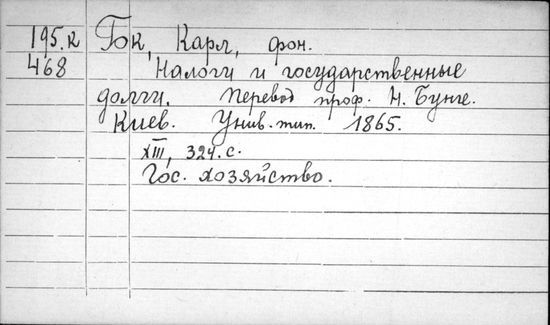 195.к Гок, Карл, фон.
468 Налоги и государственные
долги. Перевод проф. Н. Бунге.
Киев. Унив. тип. 1865.
XIII, 324 с.
Гос. хозяйство.